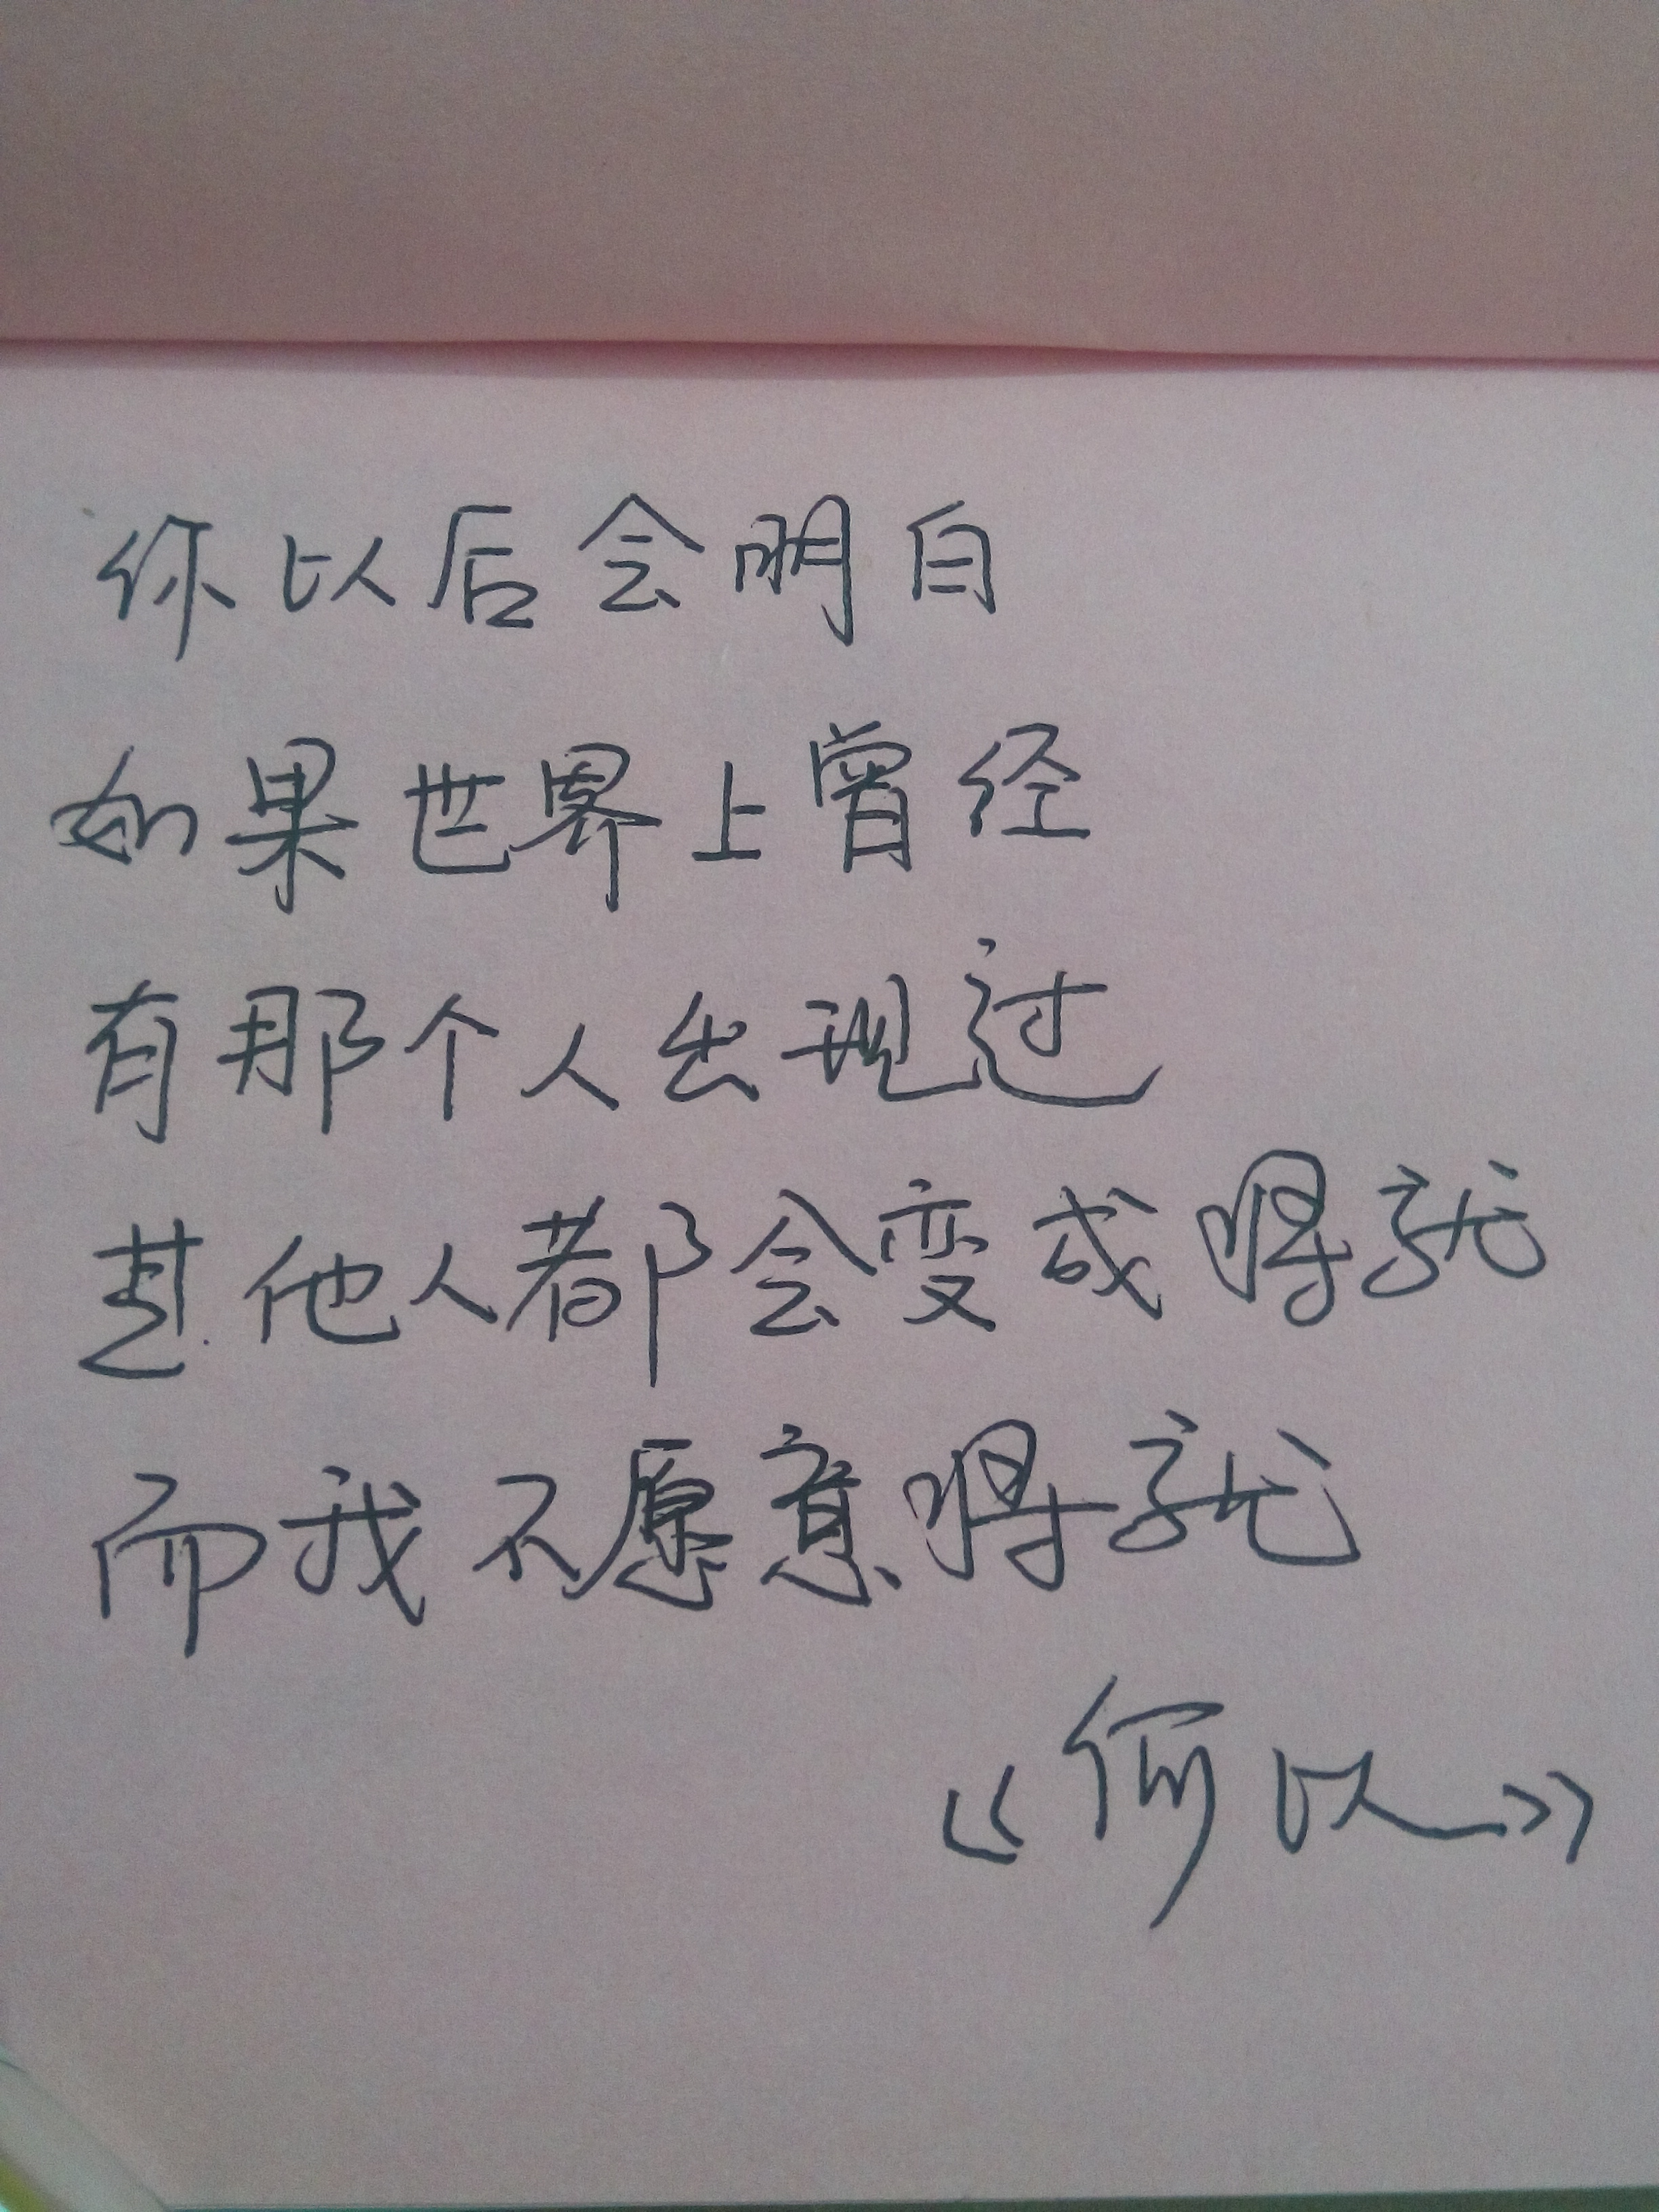 你以后会明白
如果世界上曾经
有那个人出现过
其他人都会变成将就
而我不愿意将就
《何以》